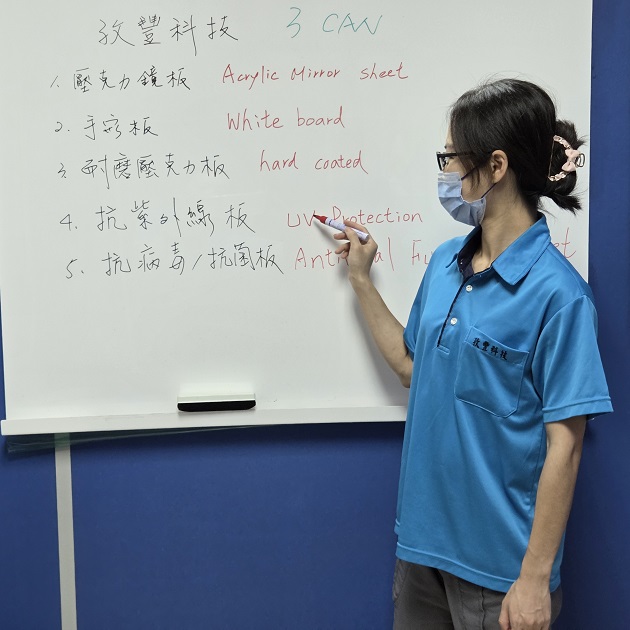 孜豐科技 3 CAN
1. 壓克力鏡板 Acrylic Mirror sheet
2. 手寫板 White board
3. 耐磨壓克力板 hard coated
4. 抗紫外線板 UV Protection
5. 抗病毒/抗菌板
孜豐科技